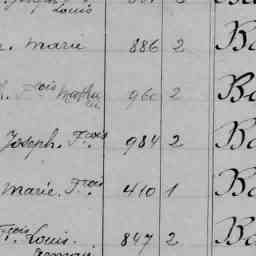 Louis
. Marie 886 2 Ba
. Frois 960 2 Ba
Joseph. Frois 984 2 Ba
Marie. Frois 410 1 Ba
Frois Louis. 847 2 Ba